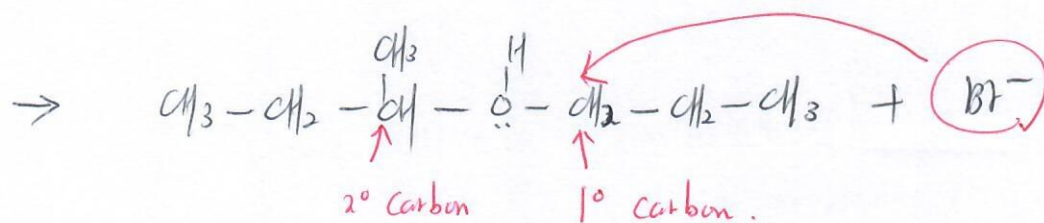 CH3 H
→ CH3 — CH2 — CH — Ö — CH2 — CH2 — CH3 + Br⁻
2° carbon 1° carbon.